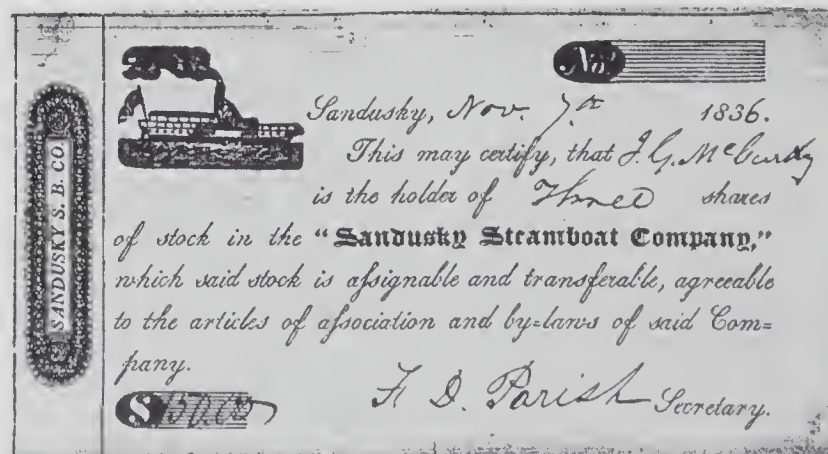 SANDUSKY S. B. CO.
No.
Sandusky, Nov. 7th 1836.
This may certify, that J. G. McCurdy
is the holder of Three shares
of stock in the "Sandusky Steamboat Company,"
which said stock is aſsignable and transferable, agreeable
to the articles of aſsociation and by=laws of said Com=
pany.
$
F. D. Parish Secretary.